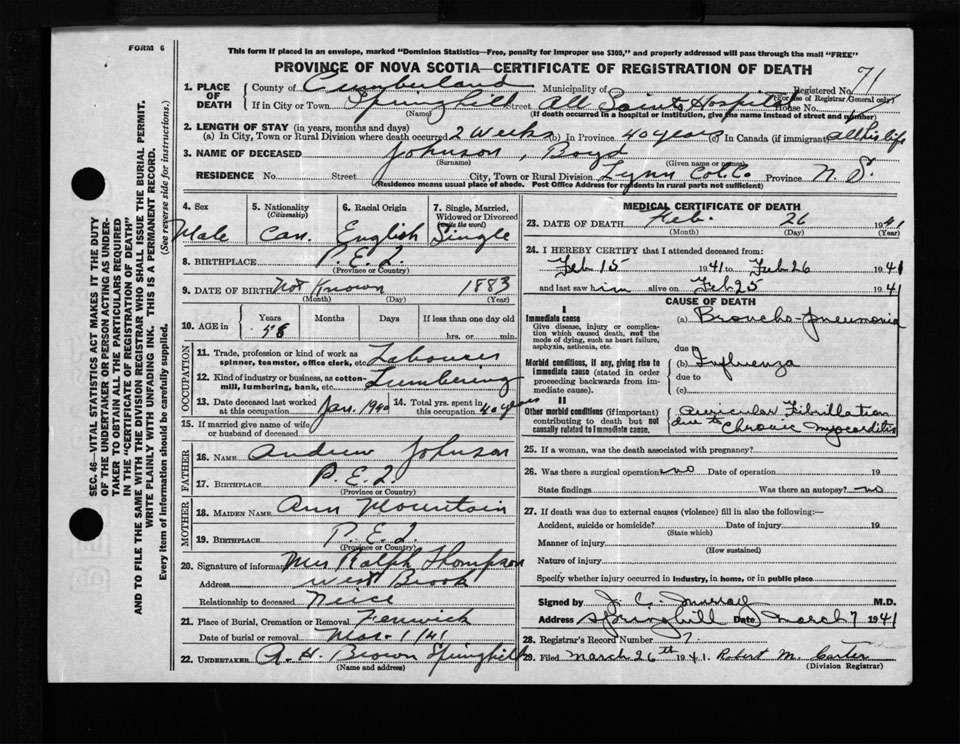 FORM 6
This form if placed in an envelope, marked "Dominion Statistics—Free, penalty for improper use $300," and properly addressed will pass through the mail "FREE"
PROVINCE OF NOVA SCOTIA—CERTIFICATE OF REGISTRATION OF DEATH
71
1. PLACE OF DEATH
County of Cumberland Municipality of Registered No.
(For use of Registrar General only)
If in City or Town Springhill Street All Saints Hospital House No.
(Name) (If death occurred in a hospital or institution, give its name instead of street and number)
2. LENGTH OF STAY (in years, months and days)
(a) In City, Town or Rural Division where death occurred 2 weeks (b) In Province 40 years (c) In Canada (if immigrant) all his life
3. NAME OF DECEASED Johnson, Boyd
(Surname) (Given name or names)
RESIDENCE No. Street City, Town or Rural Division Lynn Col. Co Province N.S.
(Residence means usual place of abode. Post Office Address for residents in rural parts not sufficient)
4. Sex Male
5. Nationality (Citizenship) Can.
6. Racial Origin English
7. Single, Married, Widowed or Divorced (write the word) Single
8. BIRTHPLACE P.E.I.
(Province or Country)
9. DATE OF BIRTH Not Known 1883
(Month) (Day) (Year)
10. AGE in Years Months Days If less than one day
58 hrs. or min.
OCCUPATION
11. Trade, profession or kind of work as spinner, teamster, office clerk, etc. Labourer
12. Kind of industry or business, as cotton-mill, lumbering, bank, etc. Lumbering
13. Date deceased last worked at this occupation Jan. 1940
14. Total yrs. spent in this occupation 40 years
15. If married give name of wife or husband of deceased
FATHER
16. NAME Andrew Johnson
17. BIRTHPLACE P.E.I.
(Province or Country)
MOTHER
18. MAIDEN NAME Ann Mountain
19. BIRTHPLACE P.E.I.
(Province or Country)
20. Signature of informant Mrs Ralph Thompson
Address West Brook
Relationship to deceased Neice
21. Place of Burial, Cremation or Removal Fenwick
Date of burial or removal Mar. 1/41
22. UNDERTAKER A. H. Brown Springhill
(Name and address)
MEDICAL CERTIFICATE OF DEATH
23. DATE OF DEATH Feb. 26 1941
(Month) (Day) (Year)
24. I HEREBY CERTIFY that I attended deceased from:
Feb 15 1941 to Feb 26 1941
and last saw him alive on Feb 25 1941
CAUSE OF DEATH
I
Immediate cause
Give disease, injury or complication which caused death, not the mode of dying, such as heart failure, asphyxia, asthenia, etc.
(a) Broncho-pneumonia
due to
Morbid conditions, if any, giving rise to immediate cause (stated in order proceeding backwards from immediate cause).
(b) Influenza
due to
(c)
II
Other morbid conditions (if important) contributing to death but not causally related to immediate cause.
Auricular Fibrillation
due to Chronic Myocarditis
25. If a woman, was the death associated with pregnancy?
26. Was there a surgical operation no Date of operation 19
State findings Was there an autopsy? no
27. If death was due to external causes (violence) fill in also the following:—
Accident, suicide or homicide? Date of injury 19
(State which)
Manner of injury
(How sustained)
Nature of injury
Specify whether injury occurred in industry, in home, or in public place
Signed by J. C. Murray M.D.
Address Springhill Date March 7 1941
28. Registrar's Record Number 7.
29. Filed March 26th 1941. Robert M. Carter
(Division Registrar)
SEC. 46—VITAL STATISTICS ACT MAKES IT THE DUTY
OF THE UNDERTAKER OR PERSON ACTING AS UNDERTAKER TO OBTAIN ALL THE PARTICULARS REQUIRED
IN THE "CERTIFICATE OF REGISTRATION OF DEATH"
AND TO FILE THE SAME WITH THE DIVISION REGISTRAR WHO SHALL ISSUE THE BURIAL PERMIT.
WRITE PLAINLY WITH UNFADING INK. THIS IS A PERMANENT RECORD.
Every item of information should be carefully supplied. (See reverse side for instructions.)